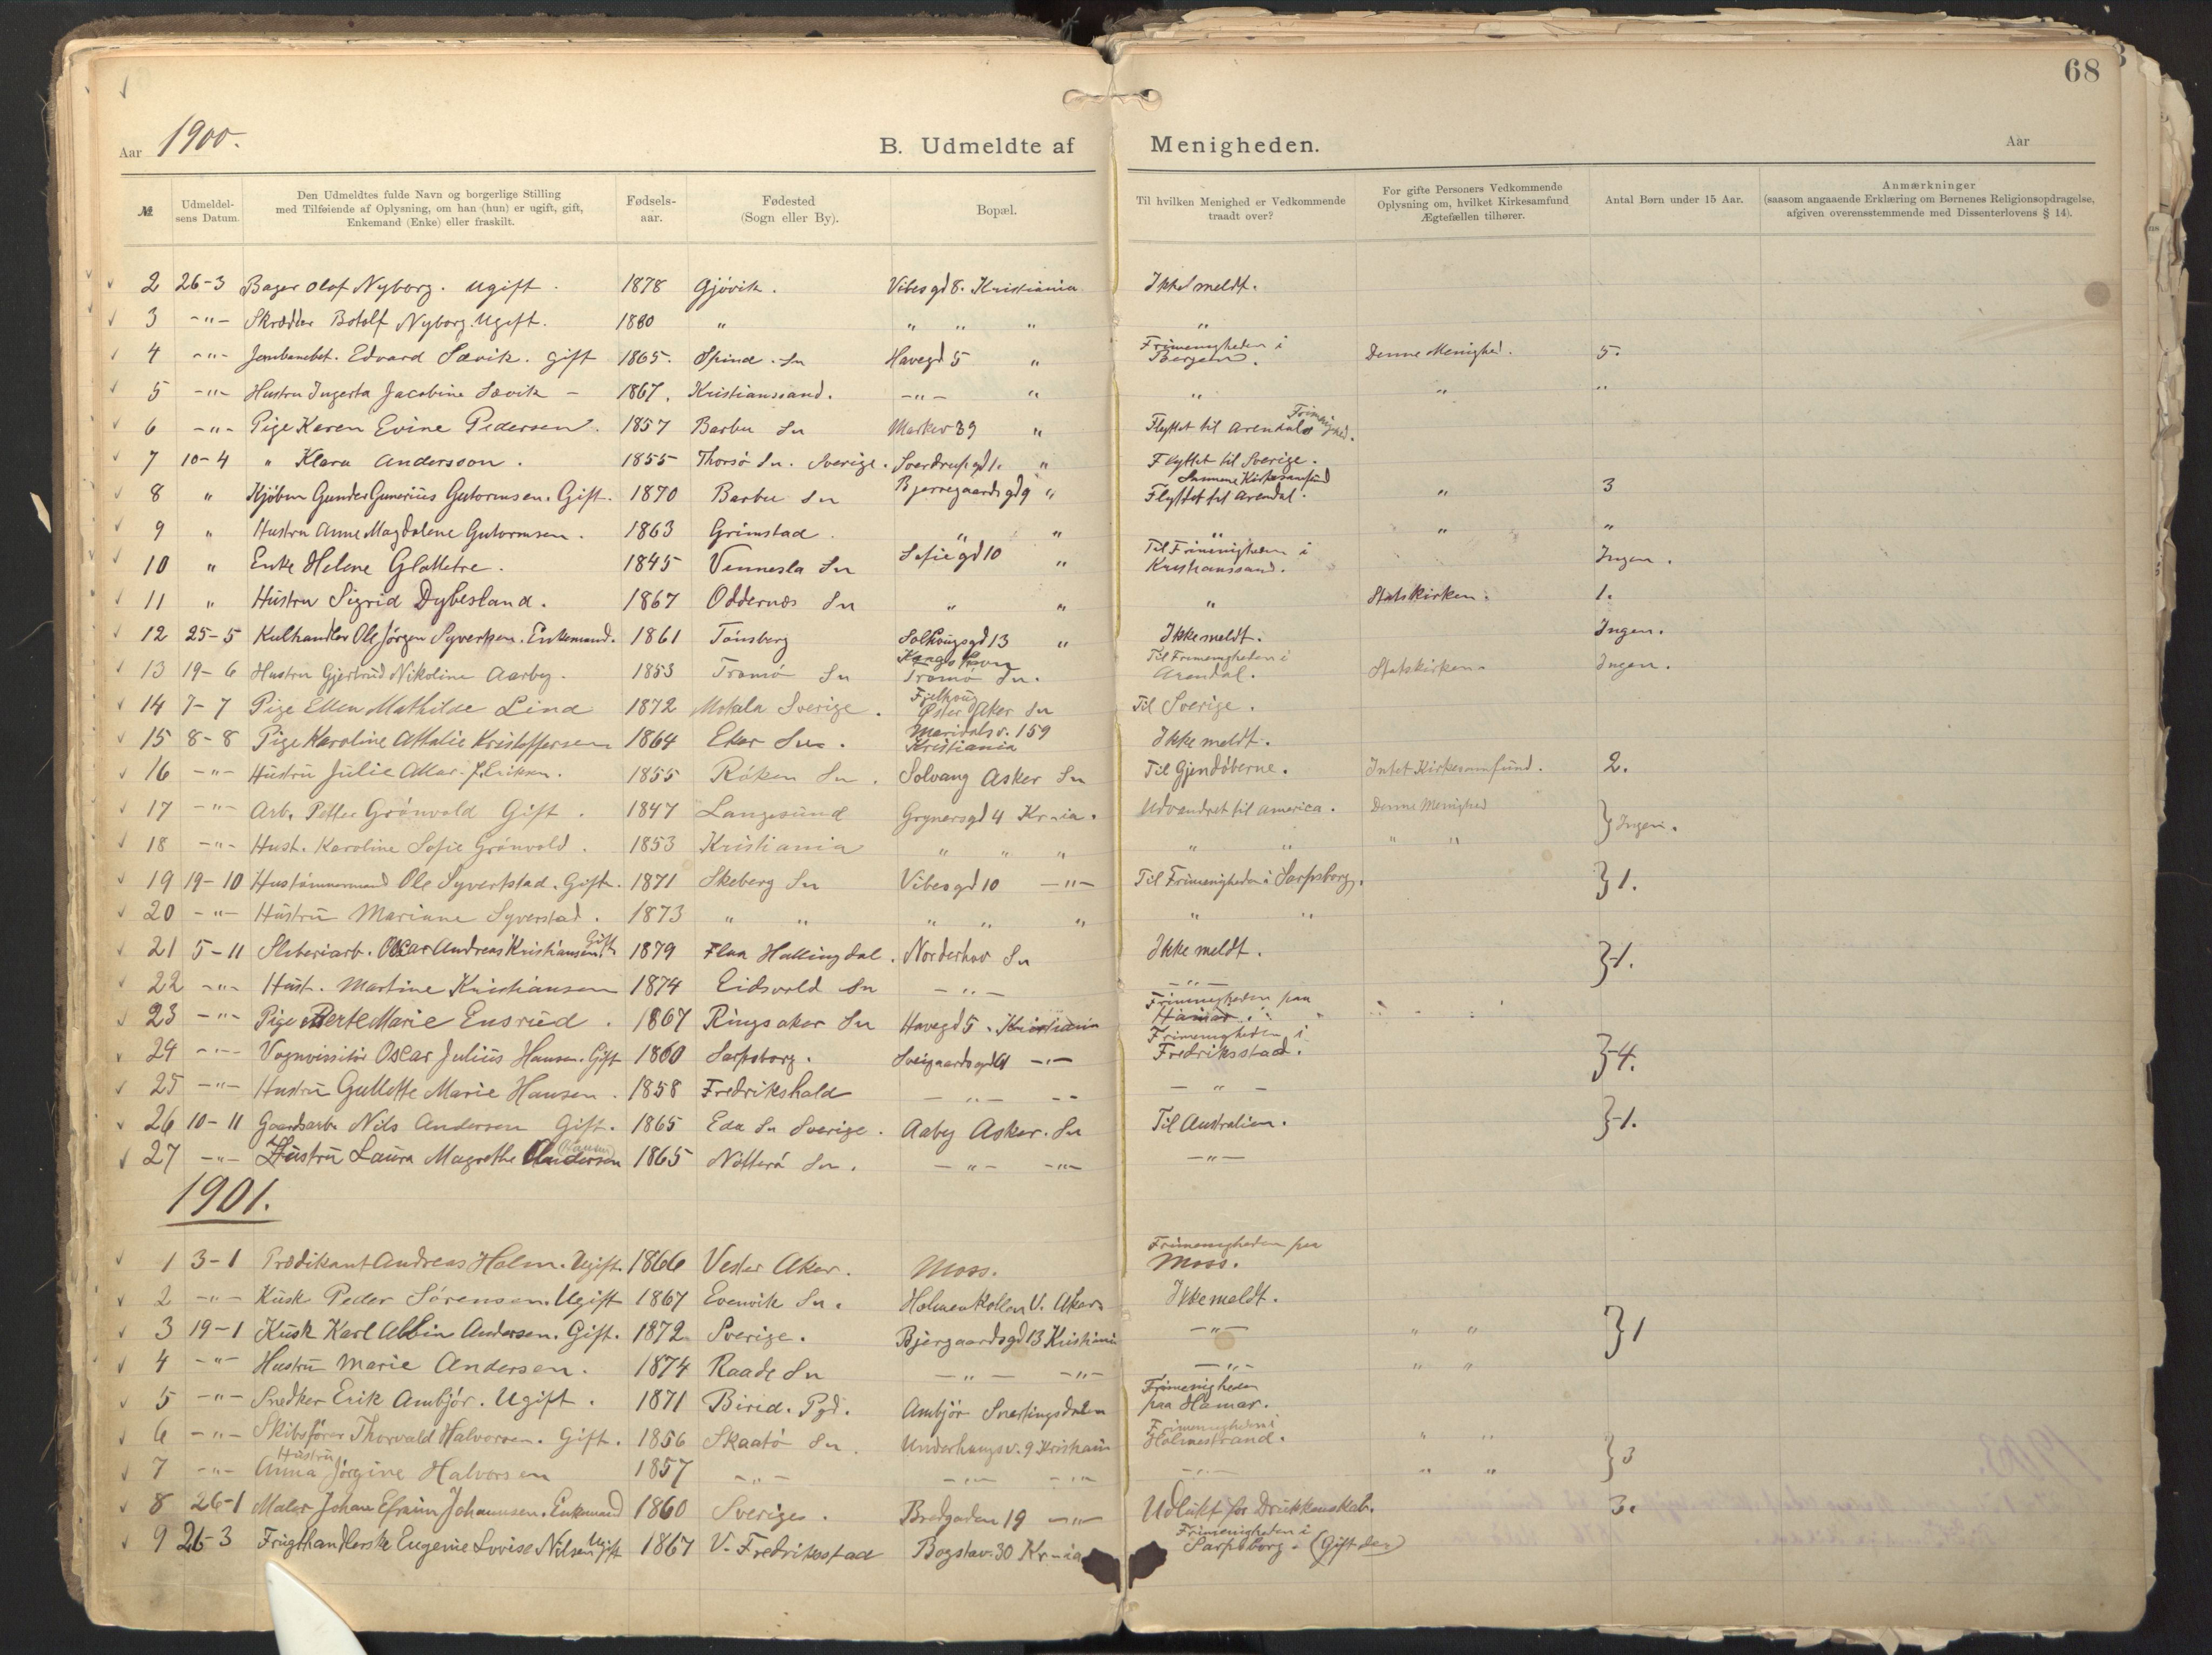 68
Aar 1900. B. Udmeldte af Menigheden. Aar
№ Udmeldelsens Datum. Den Udmeldtes fulde Navn og borgerlige Stilling med Tilføiende af Oplysning, om han (hun) er ugift, gift, Enkemand (Enke) eller fraskilt. Fødselsaar. Fødested (Sogn eller By). Bopæl. Til hvilken Menighed er Vedkommende traadt over? For gifte Personers Vedkommende Oplysning om, hvilket Kirkesamfund Ægtefællen tilhører. Antal Børn under 15 Aar. Anmærkninger (saasom angaaende Erklæring om Børnenes Religionsopdragelse, afgiven overensstemmende med Dissenterlovens § 14).
2 26-3 Bager Olaf Nyborg. Ugift. 1878 Gjøvik. Vibesgd 8. Kristiania Ikke meldt.
3 -"- Skrædder Botolf Nyborg. Ugift. 1880 " " " " "
4 -"- Edvard Sævik. gift 1865. Spind. Sn Havegd 5 " Frimenigheden i Bergen. Denne Menighed. 5.
5 -"- Hustru Ingerta Jacobine Sævik - 1867. Kristianssand. -"- " " " "
6 -"- Pige Karen Evine Pedersen. 1857 Barbu Sn Markev 39 " Flyttet til Arendals Frimenighed.
7 10-4 " Klara Andersson. 1855 Thorsø Sn. Sverige. Sverdrupsgd 1. " Flyttet til Sverige.
8 " Kjøbm Gunder Gunerius Gutormsen. Gift. 1870 Barbu Sn Bjerregaardsgd 9 " Flyttet til Arendal. Samme Kirkesamfund " 3
9 " Hustru Anne Magdalene Gutormsen. 1863 Grimstad. " " " " "
10 " Enke Helene Glattetre. 1845 Vennesla Sn Sofiegd 10 " Til Frimenigheden i Kristianssand. Ingen.
11 " Hustru Sigrid Dybesland. 1867 Oddernæs Sn " " " Statskirken. 1.
12 25-5 Kulhandler Ole Jørgen Syvertsen. Enkemand. 1861 Tønsberg 13 " Ikke meldt. Ingen.
13 19-6 Hustru Gjertrud Nikoline Aarby. 1853 Tromø Sn Kongshavn Tromø Sn. Til Frimenigheden i Arendal. Statskirken. Ingen.
14 7-7 Pige Ellen Mathilde Lind 1872 Motala Sverige. Fjelhoug Øster Aker Sn Til Sverige.
15 8-8 Pige Karoline Attalie Kristoffersen 1864 Eker Sn. Maridalsv. 159 Kristiania Ikke meldt.
16 -"- Hustru Julie Eriksen. 1855 Røken Sn. Solvang Asker Sn Til Gjendøberne. Intet Kirkesamfund. 2.
17 -"- Arb. Petter Grønvold Gift. 1847 Langesund Grynersgd 4 Kr-ia. Udvandret til America. Denne Menighed } Ingen.
18 -"- Hust. Karoline Sofie Grønvold. 1853 Kristiania " " " " " " "
19 19-10 Hustømmermand Ole Syvertstad. Gift. 1871 Skeberg Sn Vibesgd 10 -"- Til Frimenigheden i Sarpsborg. } 1.
20 -"- Hustru Marianne Syverstad. 1873 " " " " " " "
21 5-11 Sliberiarb. Oscar Andreas Kristiansen. Gift. 1879 Flaa Hallingdal. Norderhov Sn Ikke meldt. } 1.
22 -"- Hust. Martine Kristiansen 1874 Eidsvold Sn -"- -"-
23 -"- Pige Berte Marie Ensrud. 1867 Ringsaker Sn Havegd 5. Kristiania Frimenigheden paa Hamar.
24 -"- Vognvisitør Oscar Julius Hansen. Gift 1860 Sarpsborg. -"- Frimenigheden i Fredriksstad. } 4.
25 -"- Hustru Gullette Marie Hansen. 1858 Fredrikshald -"- -"- -"-
26 10-11 Gaardsarb. Nils Andersen Gift. 1865 Eda Sn Sverige. Aaby Asker. Sn Til Australien. } 1.
27 -"- Hustru Laura Magrethe Andersen 1865 Nøtterø Sn. -"- -"- -"-
1901.
1 3-1 Prædikant Andreas Holm. Ugift. 1866 Vester Aker. Moss. Frimenigheden paa Moss.
2 -"- Kusk Peder Sørensen. Ugift 1867 Evenvik Sn. Holmenkollen V. Aker Ikke meldt.
3 19-1 Kusk Karl Albin Andersen. Gift. 1872 Sverige. Bjergaardsgd 13 Kristiania -"- " " } 1
4 -"- Hustru Marie Andersen. 1874 Raade Sn -"- -"- -"- " "
5 -"- Snedker Erik Ambjør. Ugift. 1871 Birid. Pgd. Ambjør Snertingdalen Frimenigheden paa Hamar.
6 -"- Skibsfører Thorvald Halvorsen. Gift. 1856 Skaatø Sn. Underhaugsv. 9 Kristiania Frimenigheden i Holmestrand. " " } 3
7 -"- Hustru Anna Jørgine Halvorsen 1857 -"- -"- -"- -"- " "
8 26-1 Maler Johan Efraim Johannsen. Enkemand 1860 Sverige. Bredgaden 19 -"- Udlukt for Drukkenskab. 3.
9 26-3 Frugthandlerske Eugenie Lovise Nilsen Ugift 1867 V. Fredriksstad Bogstav. 30 Kr-ia Frimenigheden i Sarpsborg. (Gift der)